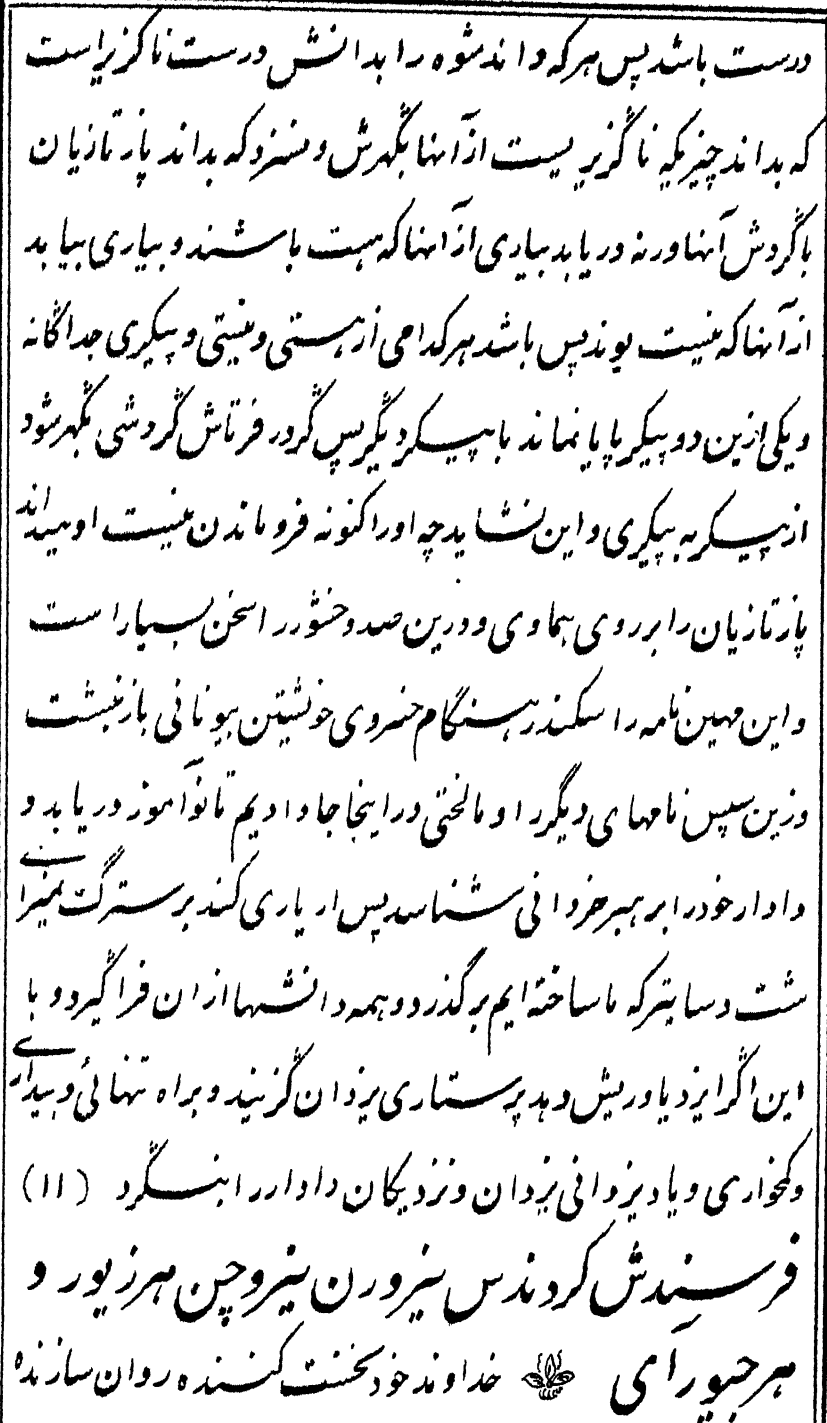 درست باشد پس هر که داند شوه را بدانش درست ناگزیر است
که بداند چیزیکه ناگزیر یست از آنها بگهرش و سزد که بداند پازتازیان
باگردش آنها ورنه دریابد بیاری از آنها که هست باشند و بیاری بیابد
از آنها که نیست بوند پس باشد هر کدامی از هستی و نیستی و پیکری جداگانه
و یکی ازین دو پیکر پایا نماند با پیکر دیگر پس گردد فرتاش گردشی بگهر شود
از پیکر به پیکری و این نشاید چه او را کنونه فرو ماندن نیست او میداند
پازتازیان را بر روی هماوی و درین صد و خشور را سخن بسیار است
و این مهین نامه را سکندر هنگام خسروی خویشتن بیونانی باز نبشت
وزین سپس نامهای دیگر را و ما لختی در اینجا جا دادیم تا نوآموز دریابد و
دادار خود را برهبر خردانی شناسد پس ار یاری کند بر سترگ
شت دساتیر که ما ساخته ایم بر گذرد و همه دانشها ازان فرا گیرد و با
این اگر ایزد یاوریش دهد پرستاری یزدان گزیند و براه تنهائی و بیداری
و کمخواری و یاد یزدانی یزدان و نزدیکان دادار را بنگرد (۱۱)
فرسندش کردندس نیرورن نیروچن هرزیور و
هر جیور آمی خداوند خود نخست کننده روان سازنده